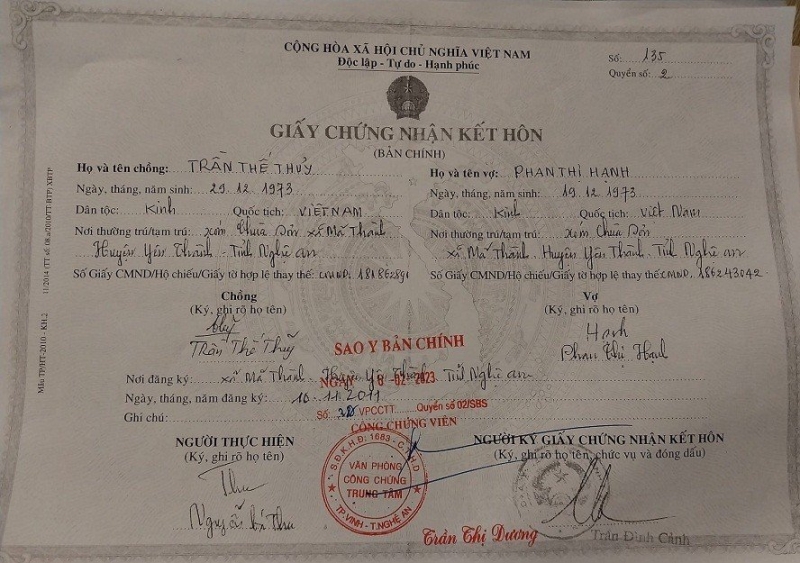 CỘNG HÒA XÃ HỘI CHỦ NGHĨA VIỆT NAM
Độc lập - Tự do - Hạnh phúc
Số: 135
Quyển số: 2
GIẤY CHỨNG NHẬN KẾT HÔN
(BẢN CHÍNH)
Họ và tên chồng: TRẦN THẾ THUỶ
Ngày, tháng, năm sinh: 29.12.1973
Dân tộc: Kinh Quốc tịch: VIỆT NAM
Nơi thường trú/tạm trú: xóm Chùa Sơn xã Mã Thành
Huyện Yên Thành - Tỉnh Nghệ An
Số Giấy CMND/Hộ chiếu/Giấy tờ hợp lệ thay thế: CMND.
Họ và tên vợ: PHAN THỊ HẠNH
Ngày, tháng, năm sinh: 19.12.1973
Dân tộc: Kinh Quốc tịch: Việt Nam
Nơi thường trú/tạm trú: xóm Chùa Sơn
xã Mã Thành. Huyện Yên Thành. Tỉnh Nghệ an
Số Giấy CMND/Hộ chiếu/Giấy tờ hợp lệ thay thế: CMND. 186243042
Chồng
(Ký, ghi rõ họ tên)
Thuỷ
Trần Thế Thuỷ
Vợ
(Ký, ghi rõ họ tên)
Hạnh
Phan Thị Hạnh
SAO Y BẢN CHÍNH
Nơi đăng ký: xã Mã Thành. Huyện Yên Thành. Tỉnh Nghệ an
NGÀY 02-2023
Ngày, tháng, năm đăng ký: 10.11.2011
Ghi chú:
Số: VPCCTT Quyển số 02/SBS
CÔNG CHỨNG VIÊN
NGƯỜI THỰC HIỆN
(Ký, ghi rõ họ tên)
Thu
Nguyễn Bá Thu
S.Đ.K.H.Đ: 1683 - C.T.H.D
VĂN PHÒNG
CÔNG CHỨNG
TRUNG TÂM
TP.VINH - T.NGHỆ AN
NGƯỜI KÝ GIẤY CHỨNG NHẬN KẾT HÔN
(Ký, ghi rõ họ tên, chức vụ và đóng dấu)
Trần Thị Dương
Trần Đình Cảnh
Mẫu TP/HT-2010 - KH.2
11/2014 (TT số 08.a/2010/TT-BTP) XBTP